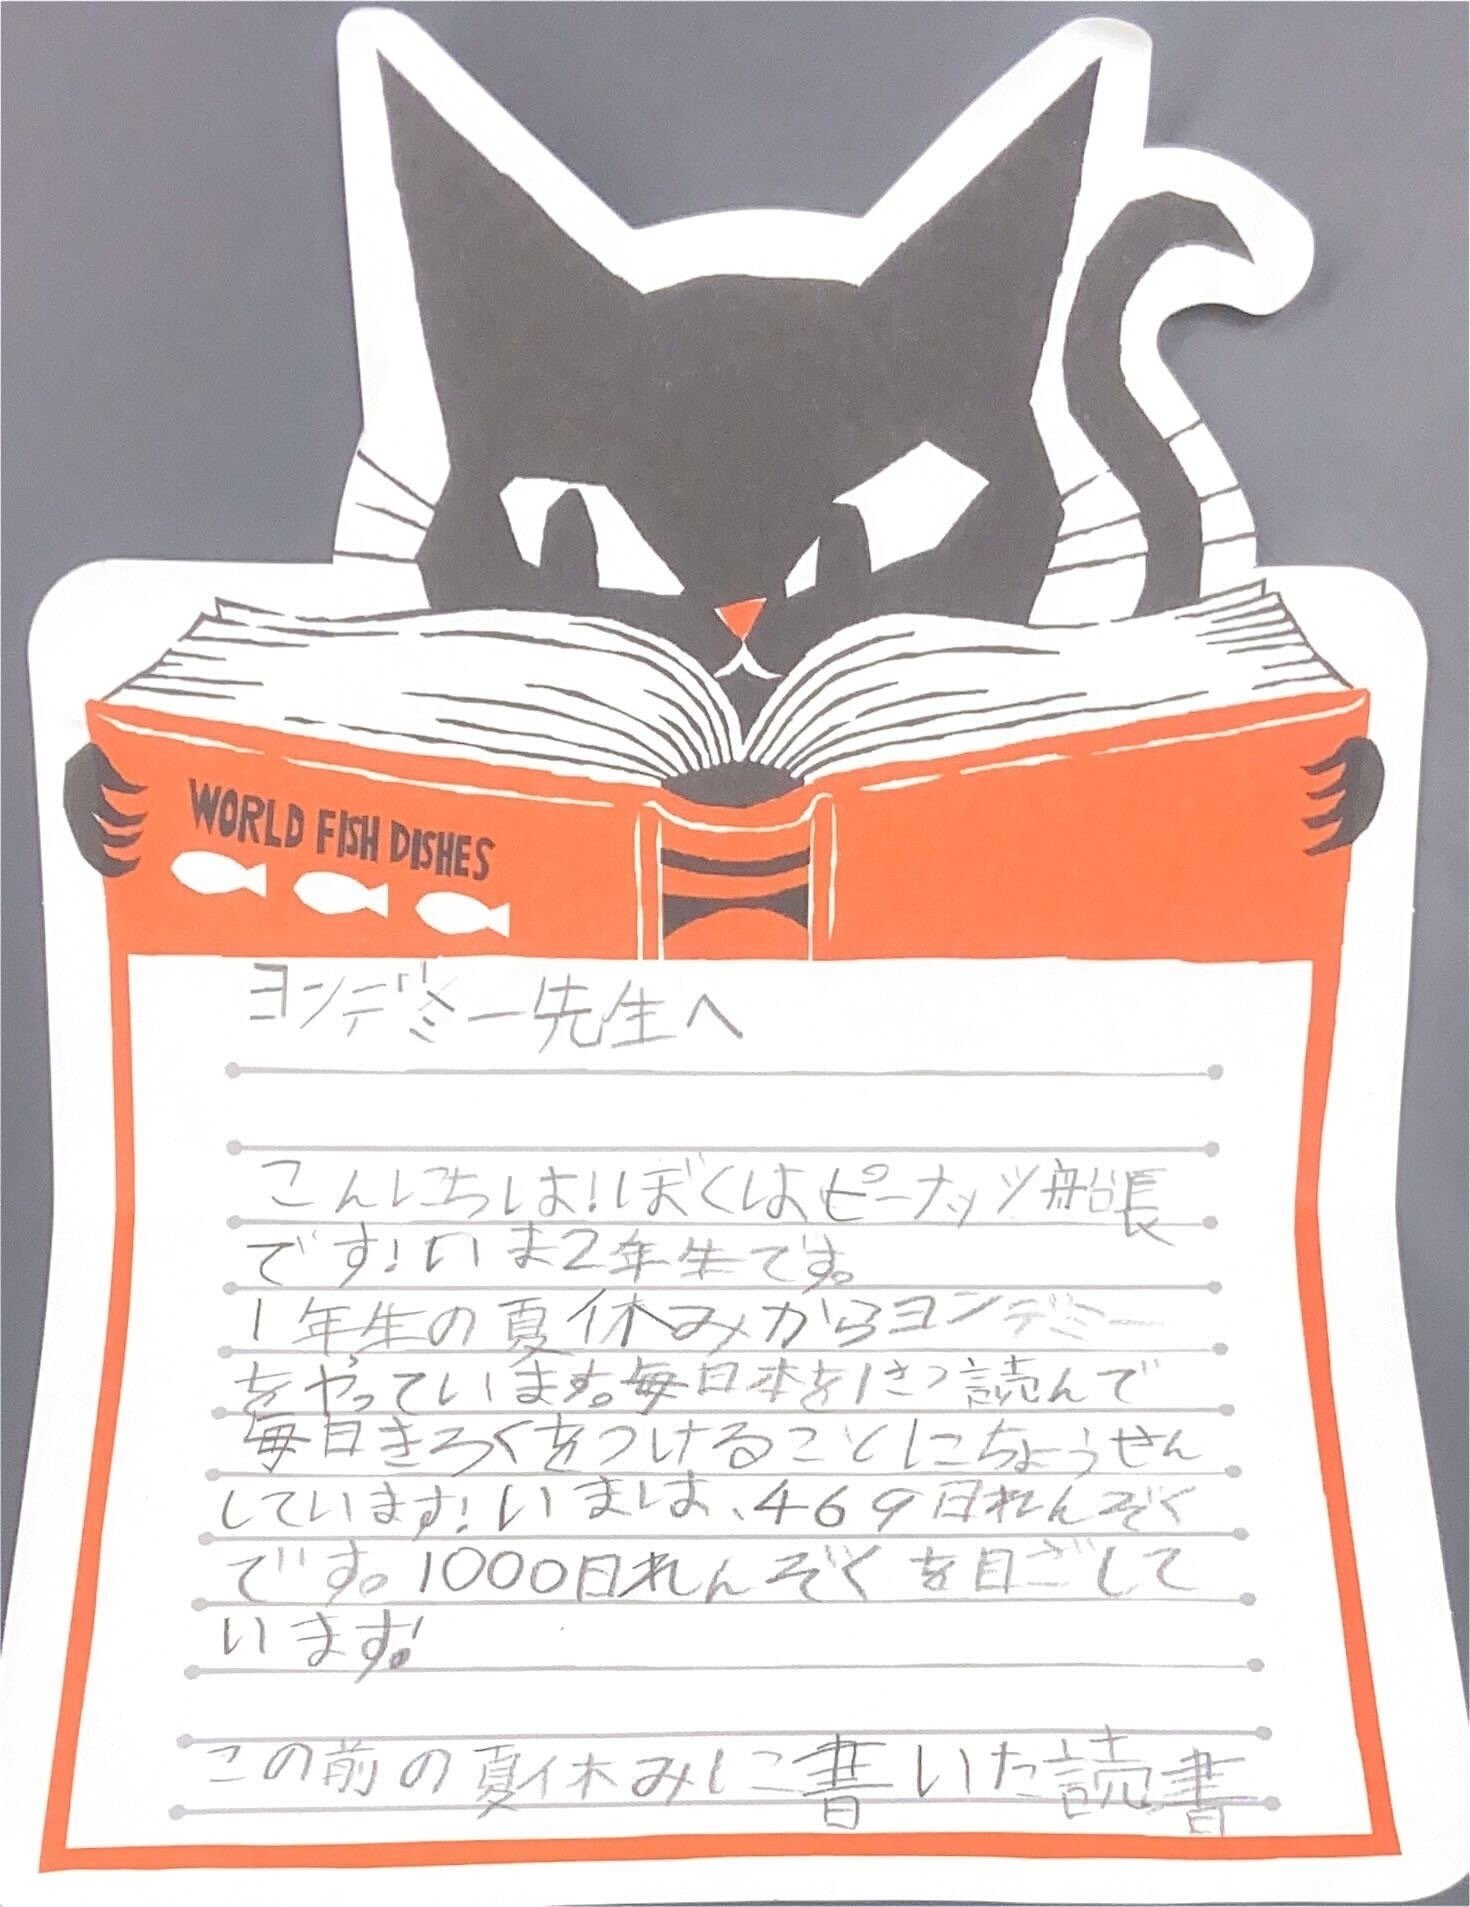 WORLD FISH DISHES
ヨンデミー先生へ
こんにちは!ぼくはピーナッツ船長
です!いま2年生です。
1年生の夏休みからヨンデミー
をやっています。毎日本を1さつ読んで
毎日きろくをつけることにちょうせん
しています!いまは、469日れんぞく
です。1000日れんぞくを目ざして
います!
この前の夏休みに書いた読書